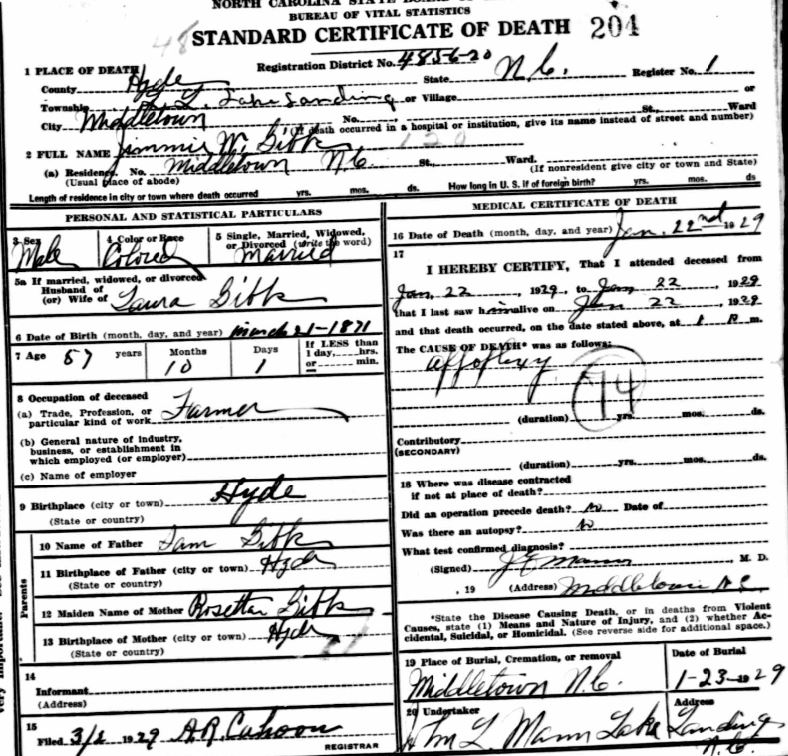 NORTH CAROLINA STATE BOARD OF
BUREAU OF VITAL STATISTICS
STANDARD CERTIFICATE OF DEATH 204
48
1 PLACE OF DEATH Registration District No. 4856-20 Register No. 1
County Hyde State N.C.
Township Lake Landing or Village or
City Middletown No. St., Ward
(If death occurred in a hospital or institution, give its name instead of street and number)
2 FULL NAME Jimmie W. Gibbs
(a) Residence. No. Middletown N.C. St., Ward.
(Usual place of abode) (If nonresident give city or town and State)
Length of residence in city or town where death occurred yrs. mos. ds How long in U. S. if of foreign birth? yrs. mos. ds
PERSONAL AND STATISTICAL PARTICULARS
3 Sex 4 Color or Race 5 Single, Married, Widowed, or Divorced (write the word)
Male Colored Married
5a If married, widowed, or divorced
Husband of
(or) Wife of Laura Gibbs
6 Date of Birth (month, day, and year) March 21-1871
7 Age 57 years Months 10 Days 1 If LESS than 1 day, hrs. or min.
8 Occupation of deceased
(a) Trade, Profession, or particular kind of work Farmer
(b) General nature of industry,
business, or establishment in
which employed (or employer)
(c) Name of employer
9 Birthplace (city or town) Hyde
(State or country)
Parents
10 Name of Father Sam Gibbs
11 Birthplace of Father (city or town) Hyde
(State or country)
12 Maiden Name of Mother Rosetta Gibbs
13 Birthplace of Mother (city or town) Hyde
(State or country)
14
Informant
(Address)
15
Filed 3/2 1929 A.R. Cahoon
REGISTRAR
MEDICAL CERTIFICATE OF DEATH
16 Date of Death (month, day, and year) Jan. 22nd 1929
17
I HEREBY CERTIFY, That I attended deceased from
Jan, 22, 1929, to Jan 22, 1929
that I last saw him alive on Jan 22, 1929
and that death occurred, on the date stated above, at 1 P m.
The CAUSE OF DEATH* was as follows:
Appoplexy
74
(duration) yrs. mos. ds.
Contributory
(SECONDARY)
(duration) yrs. mos. ds.
18 Where was disease contracted
if not at place of death?
Did an operation precede death? No Date of
Was there an autopsy? No
What test confirmed diagnosis?
(Signed) J E Mann M. D.
, 19 (Address) Middletown N.C.
*State the Disease Causing Death, or in deaths from Violent
Causes, state (1) Means and Nature of Injury, and (2) whether Ac-
cidental, Suicidal, or Homicidal. (See reverse side for additional space.)
19 Place of Burial, Cremation, or removal Date of Burial
Middletown N.C. 1-23-1929
20 Undertaker Address
Wm L. Mann Lake Landing
N.C.